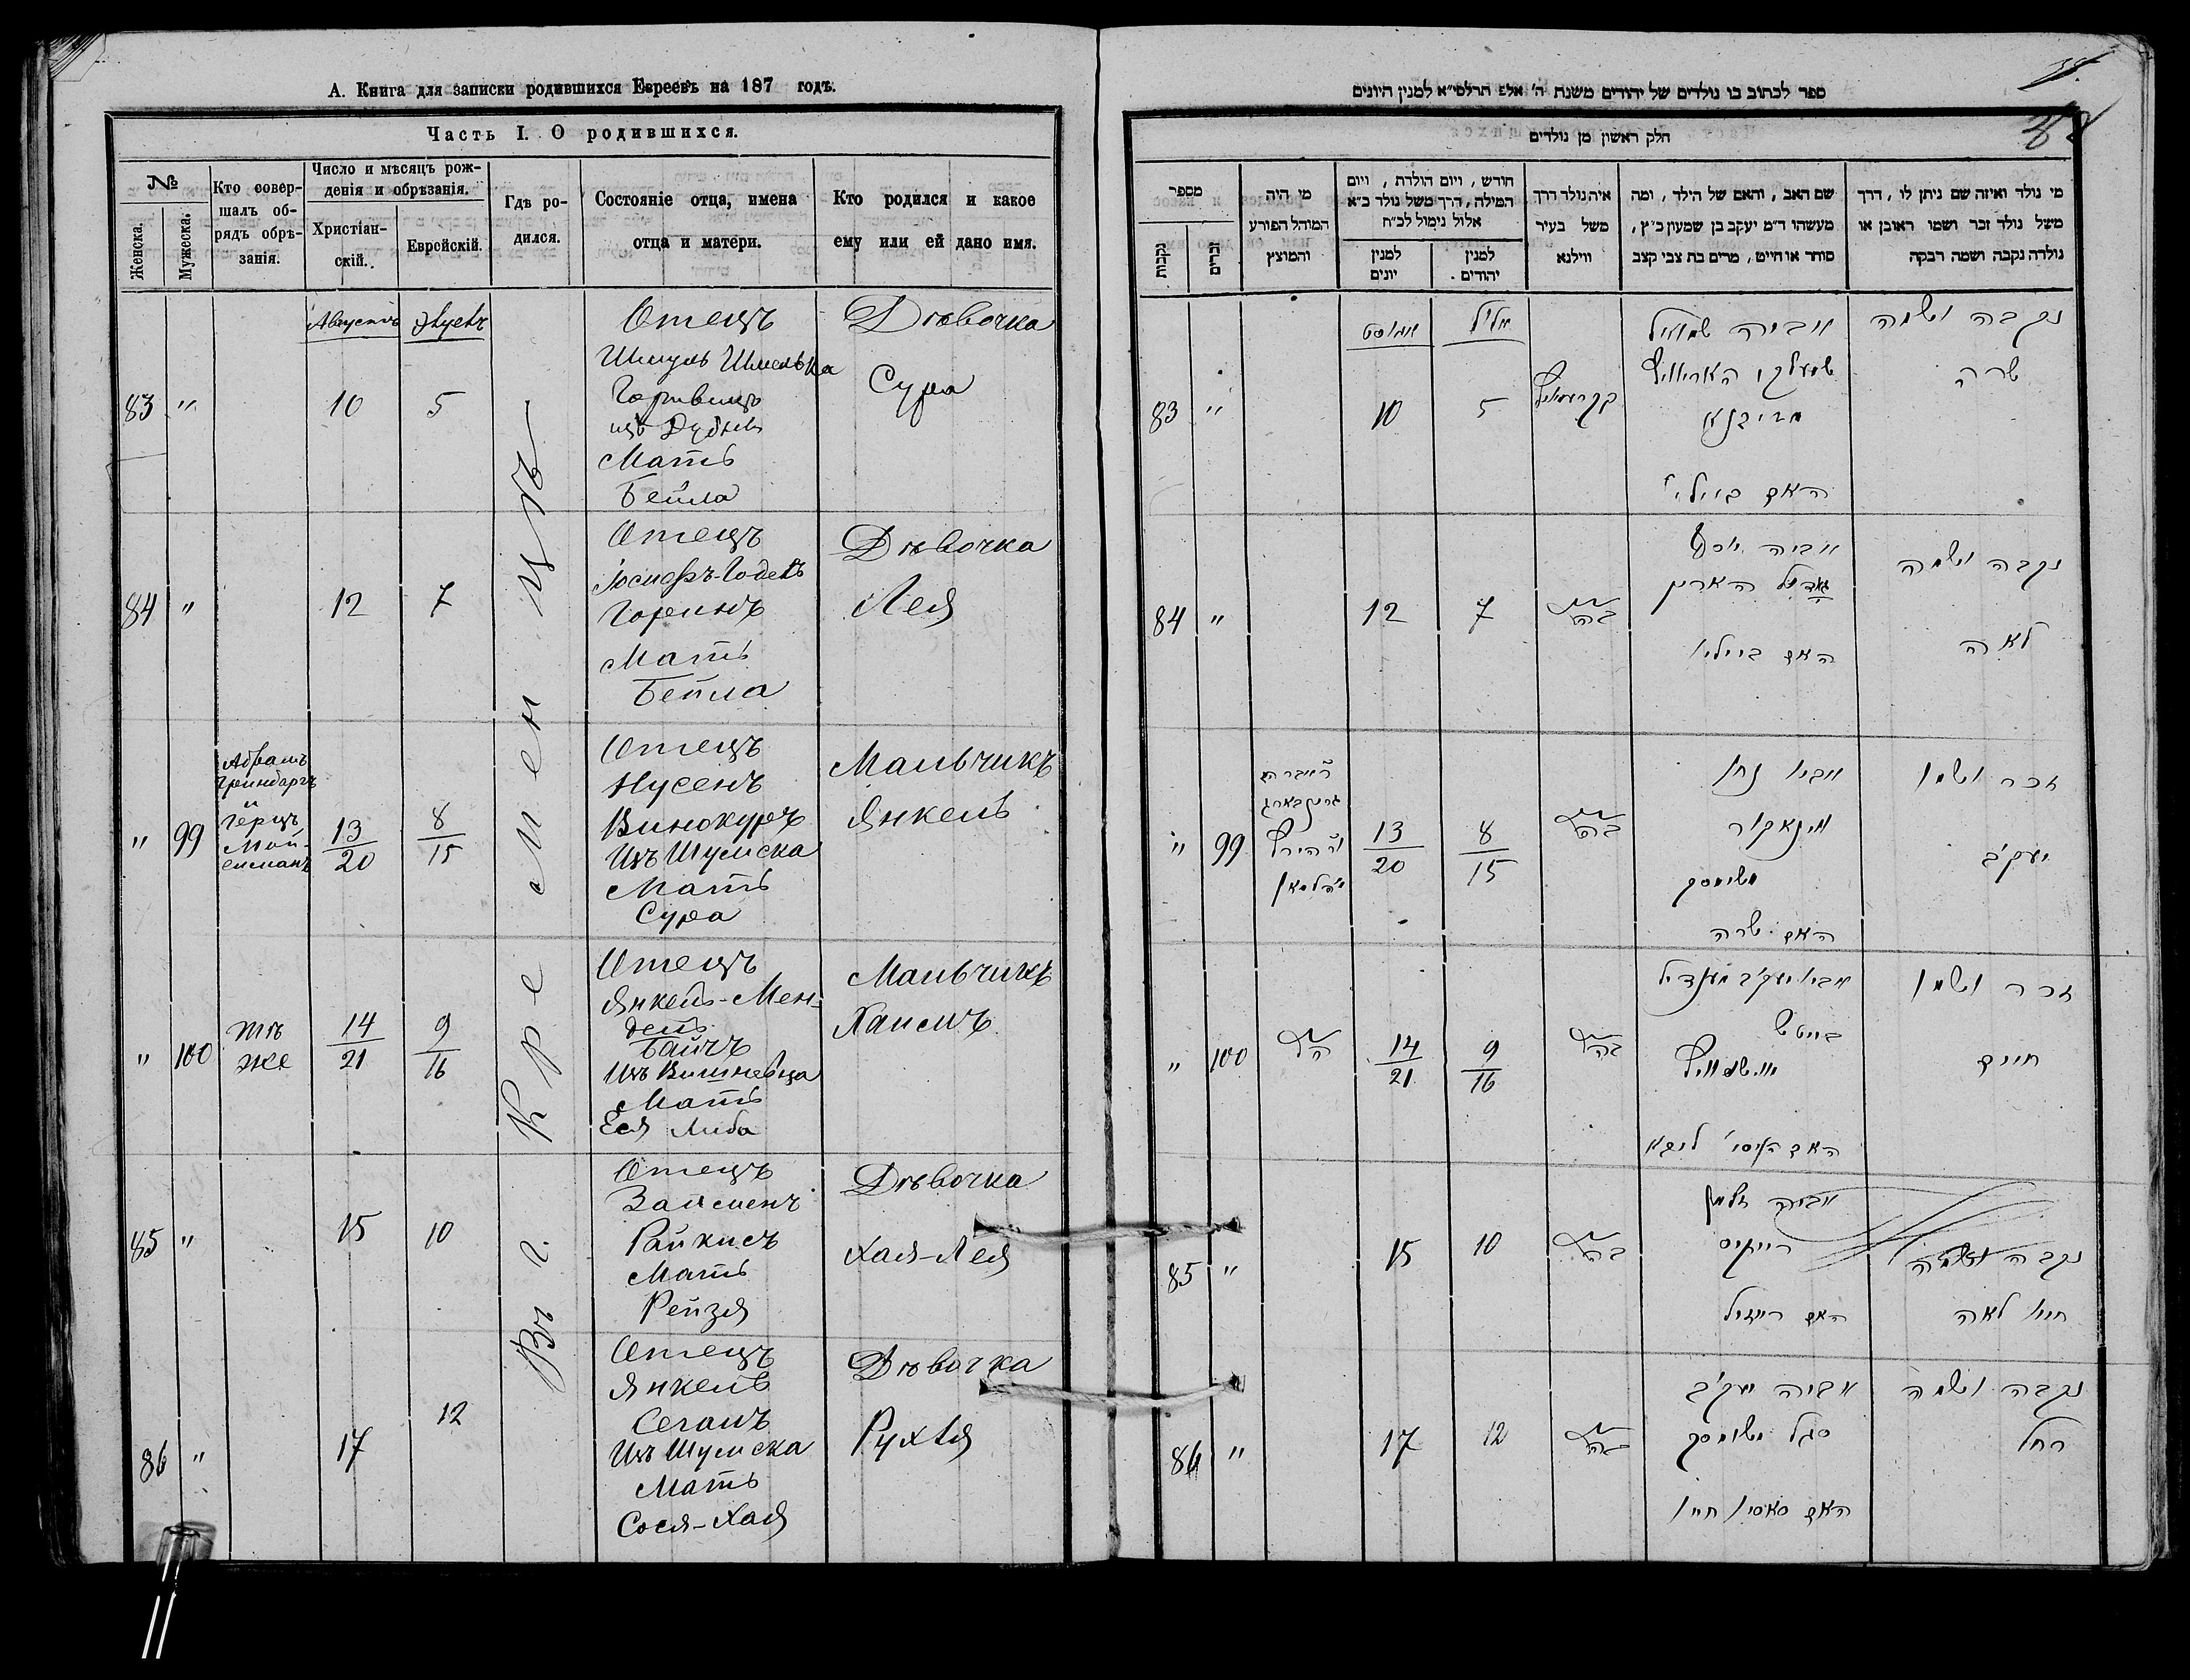 А. Книга для записки родившихся Евреевъ на 187 годъ.
Часть I. О родившихся.
№
Женска.
Мужеска.
Кто совер-
шалъ об-
рядъ обрѣ-
занія.
Число и мѣсяцъ рож-
денія и обрѣзанія.
Христіан-
скій.
Еврейскій.
Гдѣ ро-
дился.
Состояніе отца, имена
отца и матери.
Кто родился и какое
ему или ей дано имя.
Въ г. Кременцѣ
Августъ
83 " 10 5
Отецъ
Шмуль Шмелька
изъ Дубна
Мать
Бейла
Дѣвочка
Сура
84 " 12 7
Отецъ
Іосифъ-Годель
Горинъ
Мать
Бейла
Дѣвочка
Лея
" 99
Абрамъ
Гринбаргъ
и
Герцъ
Мой-
сисманъ
13/20 8/15
Отецъ
Нусенъ
Винокуръ
Изъ Шумска
Мать
Сура
Мальчикъ
Янкель
" 100
тѣ
же
14/21 9/16
Отецъ
Янкель-Мен-
дель
Байчъ
Изъ Вишневца
Мать
Еся Либа
Мальчикъ
Хаимъ
85 " 15 10
Отецъ
Залменъ
Райкисъ
Мать
Рейзя
Дѣвочка
Хая-Лея
86 " 17 12
Отецъ
Янкель
Сегалъ
Изъ Шумска
Мать
Сося-Хая
Дѣвочка
Рухля
ספר לכתוב בו נולדים של יהודים משנת ה' אלפ תרלסי"א למנין היונים
חלק ראשון מן נולדים
מספר
נקבות
זכרים
מי היה
המוהל הפורע
והמוצץ
חודש, ויום הולדת, ויום
המילה, הדרך משל נולד כ"א
אלול נימול לכ"ח
למנין
יונים
למנין
יהודים.
איה נולד דרך
משל בעיר
ווילנא
שם האב, והאם של הילד, ומה
מעשהו ד"מ יעקב בן שמעון כ"ץ,
סוחר או חייט, מרים בת צבי קצב
מי נולד ואיזה שם ניתן לו, דרך
משל נולד זכר ושמו ראובן או
נולדה נקבה ושמה רבקה
83 " 10 5
אביה שמואל
האם ביילי
נקבה ושמה
שרה
84 " 12 7
אביה יוסף
האם ביילי
נקבה ושמה
לאה
" 99
13/20 8/15
אביו נחן
ווינאקור
האם שרה
זכר ושמו
יעקב
" 100
14/21 9/16
אביו יעקב מענדיל
זכר ושמו
חיים
85 " 15 10
אביה זלמן
רייקיס
האם רייזיל
נקבה ושמה
חיי לאה
86 " 17 12
אביה יעקב
סגל
האם סאסי חיי
נקבה ושמה
רחל